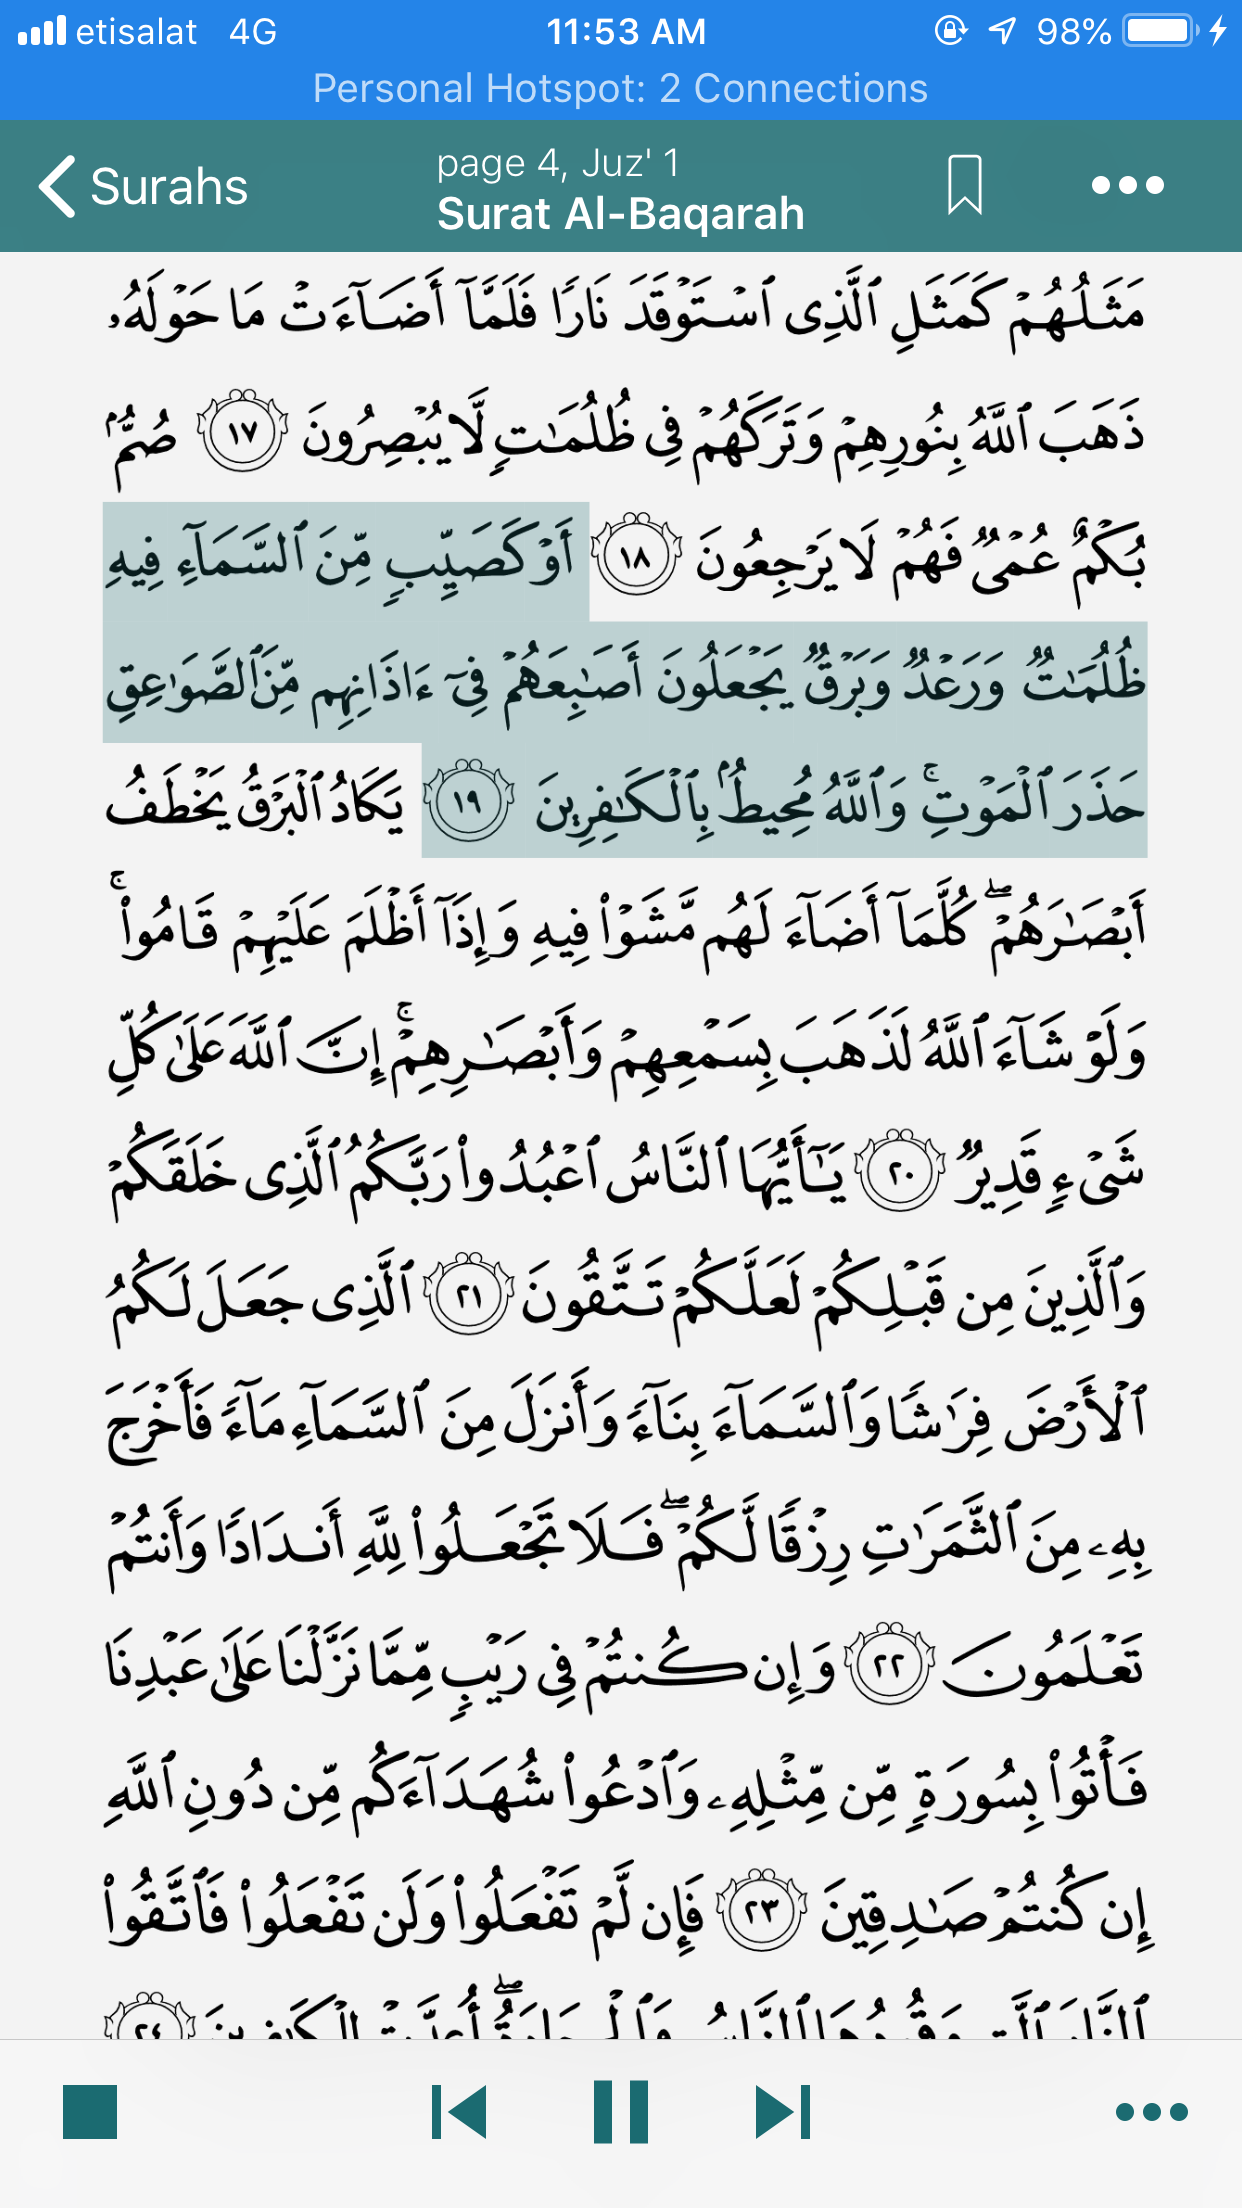 etisalat 4G 11:53 AM 98%
Personal Hotspot: 2 Connections
Surahs
page 4, Juz' 1
Surat Al-Baqarah
مَثَلُهُمْ كَمَثَلِ ٱلَّذِى ٱسْتَوْقَدَ نَارًا فَلَمَّآ أَضَآءَتْ مَا حَوْلَهُۥ
ذَهَبَ ٱللَّهُ بِنُورِهِمْ وَتَرَكَهُمْ فِى ظُلُمَـٰتٍ لَّا يُبْصِرُونَ ١٧ صُمٌّۢ
بُكْمٌ عُمْىٌ فَهُمْ لَا يَرْجِعُونَ ١٨ أَوْ كَصَيِّبٍ مِّنَ ٱلسَّمَآءِ فِيهِ
ظُلُمَـٰتٌ وَرَعْدٌ وَبَرْقٌ يَجْعَلُونَ أَصَـٰبِعَهُمْ فِىٓ ءَاذَانِهِم مِّنَ ٱلصَّوَٰعِقِ
حَذَرَ ٱلْمَوْتِ ۚ وَٱللَّهُ مُحِيطٌۢ بِٱلْكَـٰفِرِينَ ١٩ يَكَادُ ٱلْبَرْقُ يَخْطَفُ
أَبْصَـٰرَهُمْ ۖ كُلَّمَآ أَضَآءَ لَهُم مَّشَوْا۟ فِيهِ وَإِذَآ أَظْلَمَ عَلَيْهِمْ قَامُوا۟ ۚ
وَلَوْ شَآءَ ٱللَّهُ لَذَهَبَ بِسَمْعِهِمْ وَأَبْصَـٰرِهِمْ ۚ إِنَّ ٱللَّهَ عَلَىٰ كُلِّ
شَىْءٍ قَدِيرٌ ٢٠ يَـٰٓأَيُّهَا ٱلنَّاسُ ٱعْبُدُوا۟ رَبَّكُمُ ٱلَّذِى خَلَقَكُمْ
وَٱلَّذِينَ مِن قَبْلِكُمْ لَعَلَّكُمْ تَتَّقُونَ ٢١ ٱلَّذِى جَعَلَ لَكُمُ
ٱلْأَرْضَ فِرَٰشًا وَٱلسَّمَآءَ بِنَآءً وَأَنزَلَ مِنَ ٱلسَّمَآءِ مَآءً فَأَخْرَجَ
بِهِۦ مِنَ ٱلثَّمَرَٰتِ رِزْقًا لَّكُمْ ۖ فَلَا تَجْعَلُوا۟ لِلَّهِ أَندَادًا وَأَنتُمْ
تَعْلَمُونَ ٢٢ وَإِن كُنتُمْ فِى رَيْبٍ مِّمَّا نَزَّلْنَا عَلَىٰ عَبْدِنَا
فَأْتُوا۟ بِسُورَةٍ مِّن مِّثْلِهِۦ وَٱدْعُوا۟ شُهَدَآءَكُم مِّن دُونِ ٱللَّهِ
إِن كُنتُمْ صَـٰدِقِينَ ٢٣ فَإِن لَّمْ تَفْعَلُوا۟ وَلَن تَفْعَلُوا۟ فَٱتَّقُوا۟
ٱلنَّارَ ٱلَّتِى وَقُودُهَا ٱلنَّاسُ وَٱلْحِجَارَةُ ۖ أُعِدَّتْ لِلْكَـٰفِرِينَ ٢٤